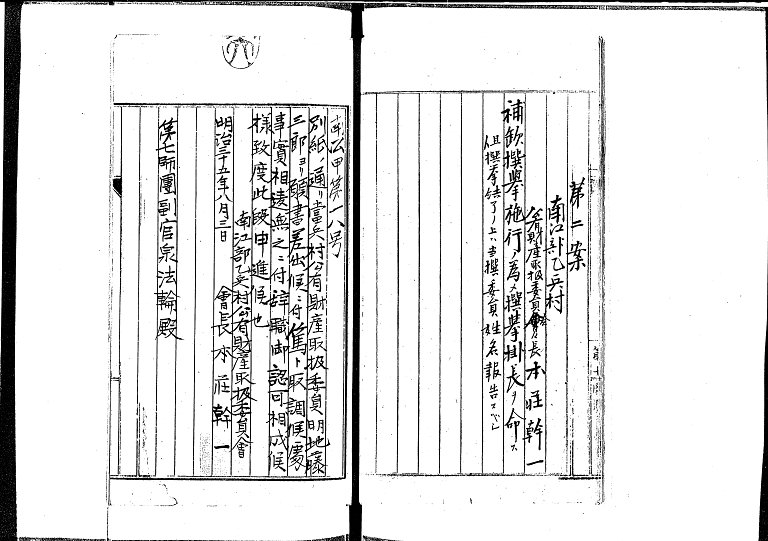 第二案
南江部乙兵村
公有財産取扱委員會長 本荘幹一
補欽撰挙施行ノ為メ撰挙掛長ヲ命ス
但撰挙結了ノ上ハ当撰委員姓名報告スベシ
南公甲第一八号
別紙ノ通リ當兵村公有財産取扱委員明地藤
三郎ヨリ願書差出候ニ付篤ト取調候處
事實相違無之ニ付辞職御認可相成候
様致度此段申進候也
南江部乙兵村公有財産取扱委員會
明治三十五年八月三日 會長 本荘幹一
第七師團副官泉法輪殿